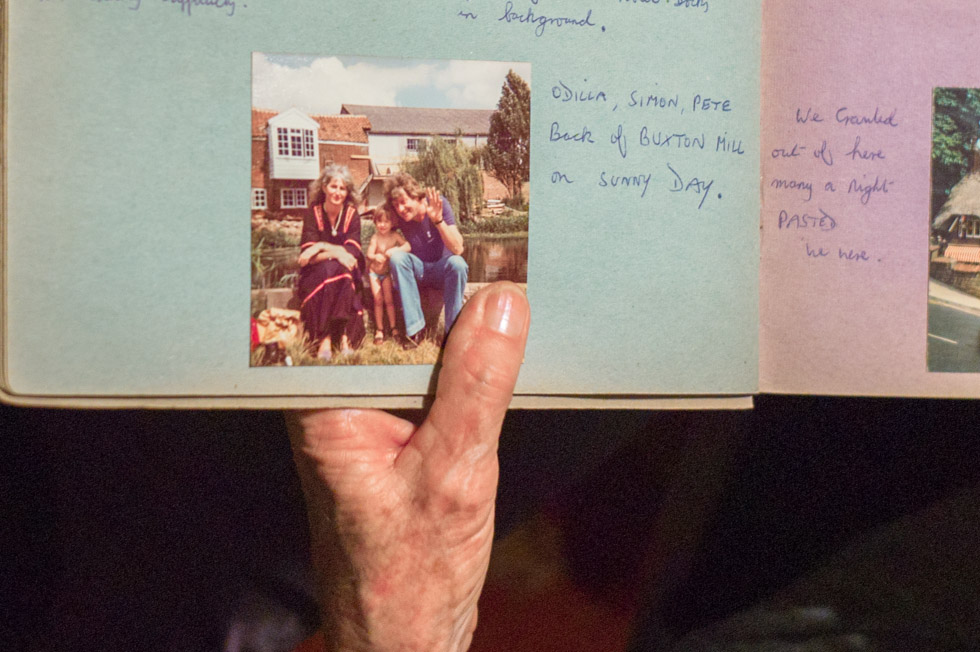 in background.
ODILLA, SIMON, PETE
Back of BUXTON MILL
on SUNNY DAY.
We Crawled
out of here
many a Night
PASTED
we were.